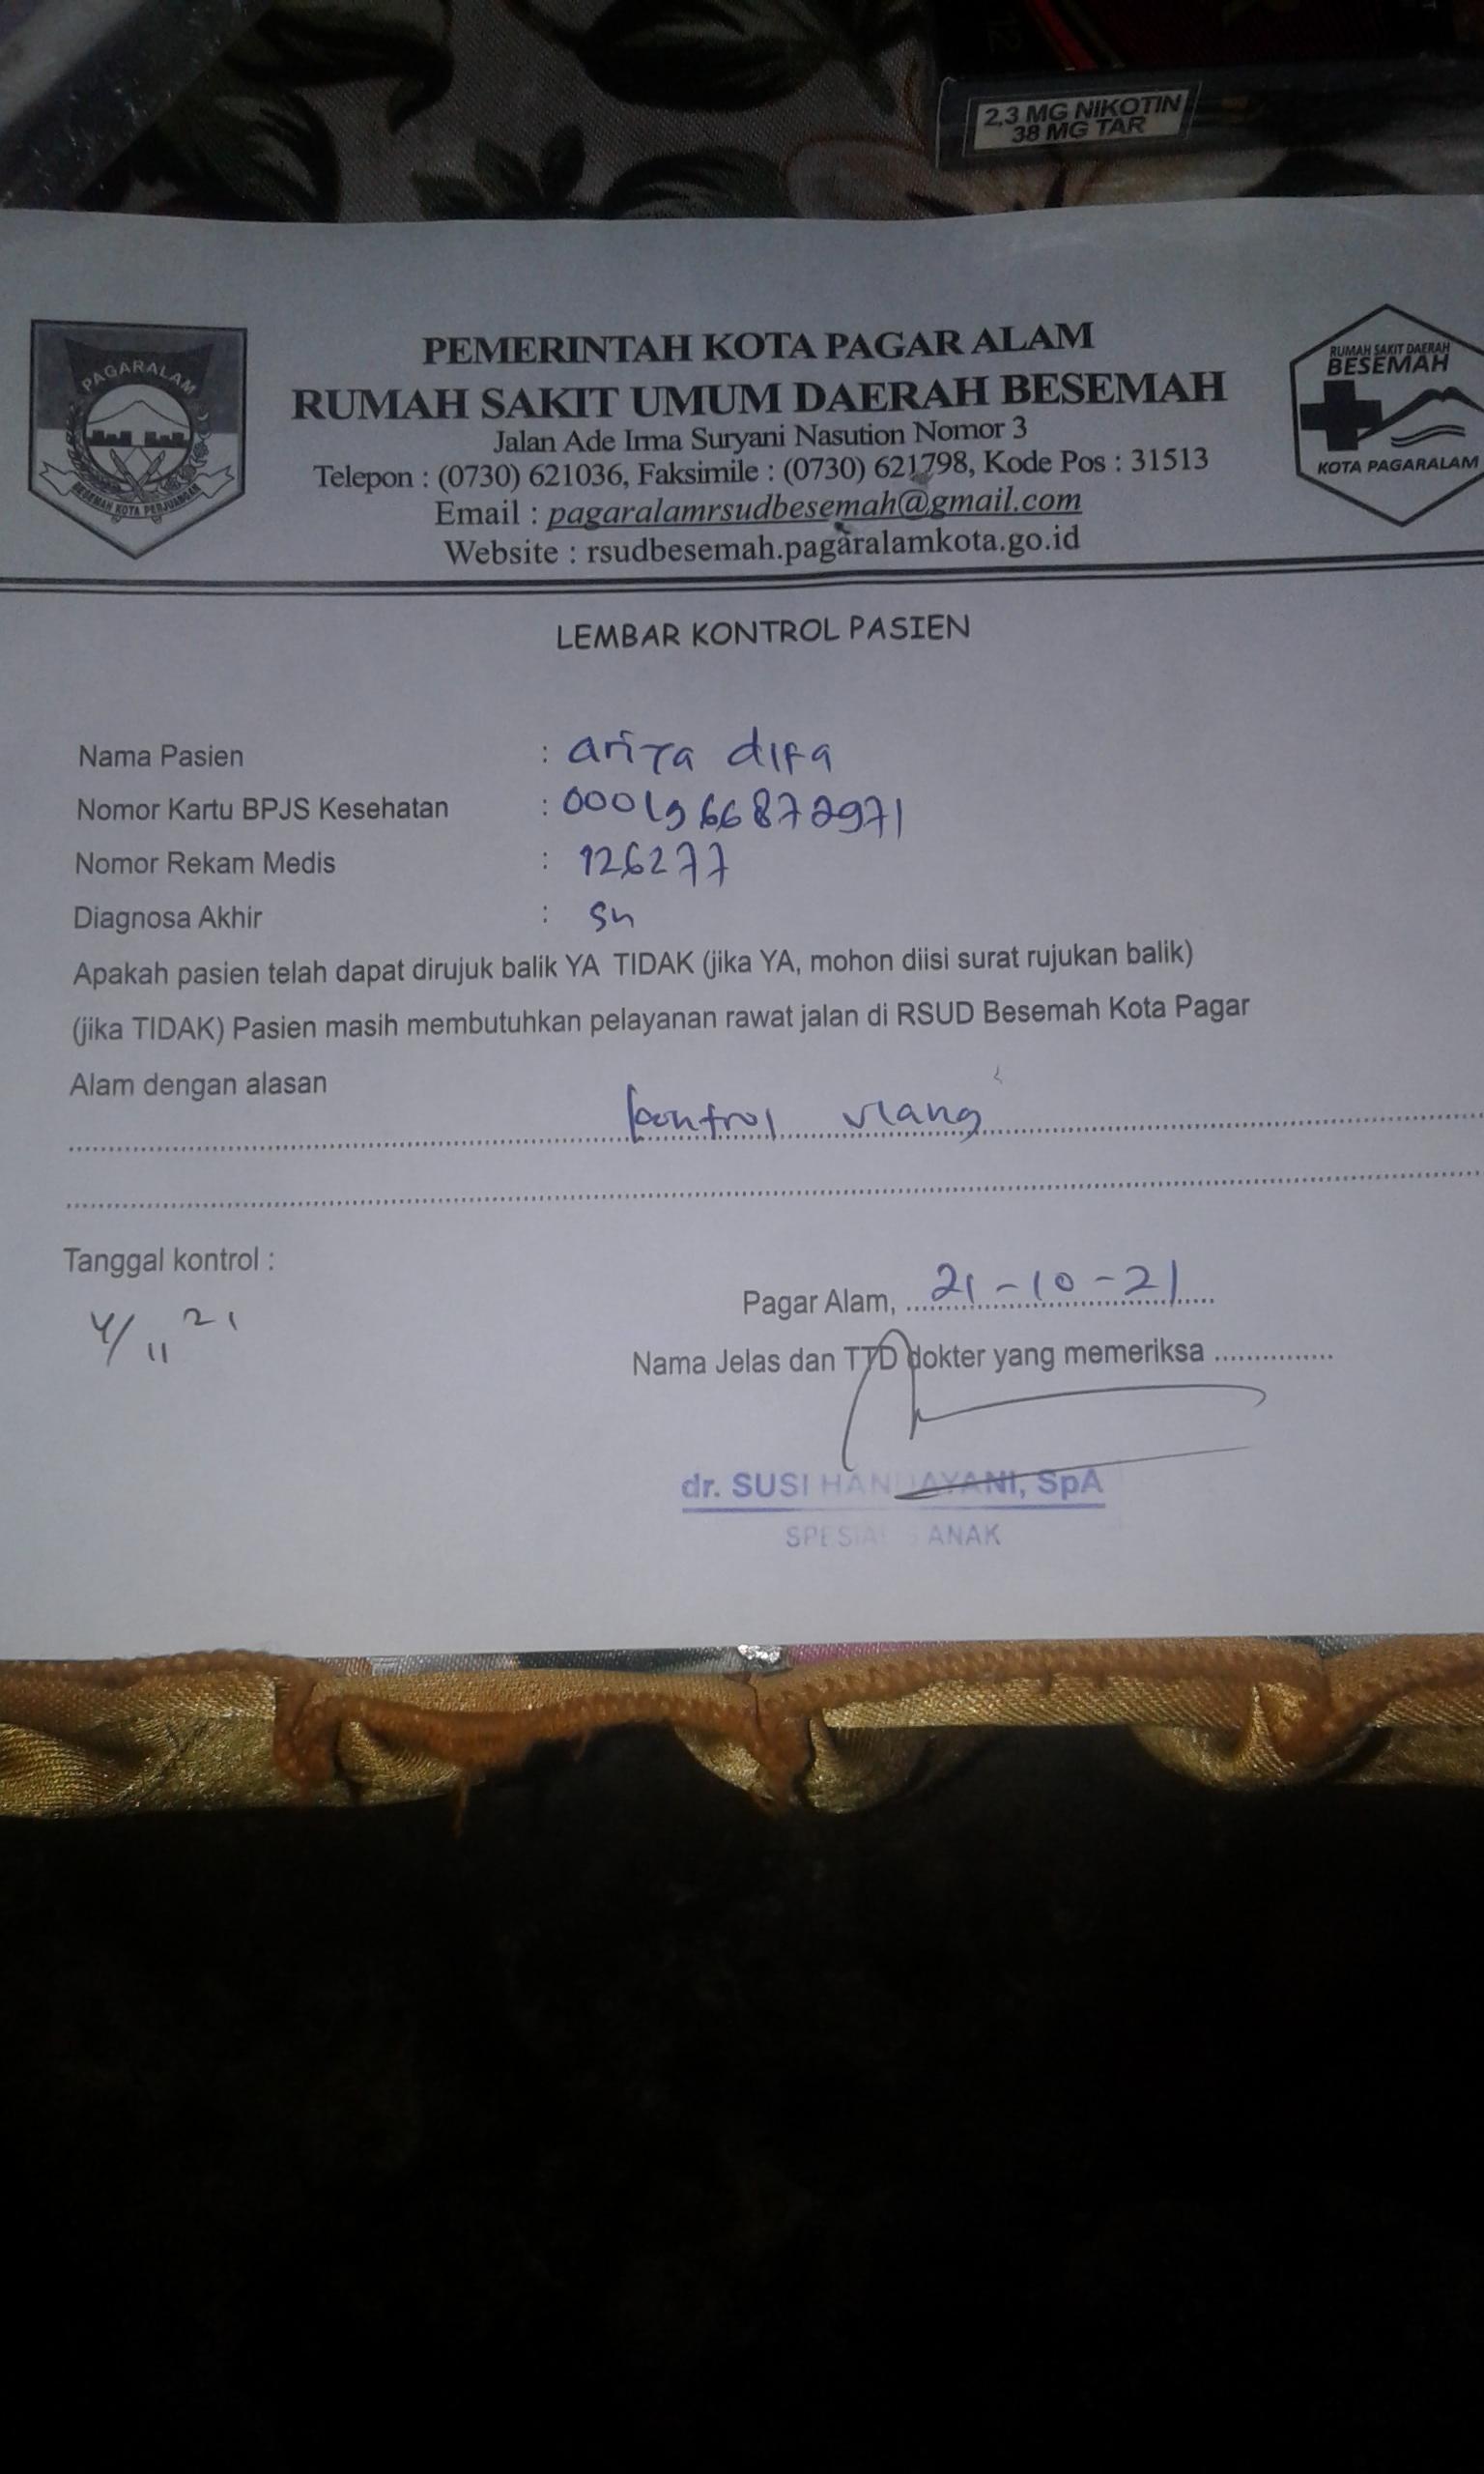 2,3 MG NIKOTIN
38 MG TAR
12
PAGARALAM
BESEMAH KOTA PERJUANGAN
PEMERINTAH KOTA PAGAR ALAM
RUMAH SAKIT UMUM DAERAH BESEMAH
Jalan Ade Irma Suryani Nasution Nomor 3
Telepon : (0730) 621036, Faksimile : (0730) 621798, Kode Pos : 31513
Email : pagaralamrsudbesemah@gmail.com
Website : rsudbesemah.pagaralamkota.go.id
RUMAH SAKIT DAERAH
BESEMAH
KOTA PAGARALAM
LEMBAR KONTROL PASIEN
Nama Pasien : ariya difa
Nomor Kartu BPJS Kesehatan :
Nomor Rekam Medis : 126277
Diagnosa Akhir : Sn
Apakah pasien telah dapat dirujuk balik YA TIDAK (jika YA, mohon diisi surat rujukan balik)
(jika TIDAK) Pasien masih membutuhkan pelayanan rawat jalan di RSUD Besemah Kota Pagar
Alam dengan alasan
kontrol ulang
Tanggal kontrol :
4/11 21
Pagar Alam, 21-10-21
Nama Jelas dan TTD dokter yang memeriksa ...............
dr. SUSI HANDAYANI, SpA
SPESIALIS ANAK